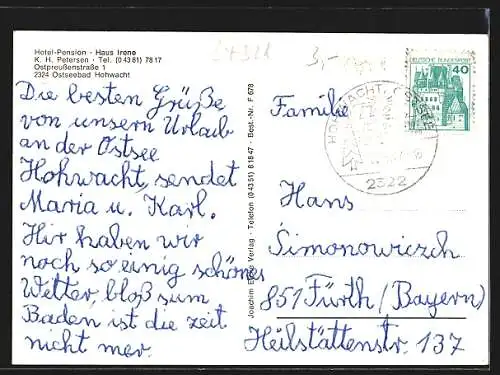 Hotel-Pension - Haus Irene
K. H. Petersen - Tel. (0 43 81) 78 17
Ostpreußenstraße 1
2324 Ostseebad Hohwacht
Die besten Grüße
von unsern Urlaub
an der Ostsee
Hohwacht, sendet
Maria u. Karl.
Hir haben wir
noch so einig schönes
Wetter, bloß zum
Baden ist die zeit
nicht mer.
Joachim Verlag - Telefon (0 43 51) 8 18 47 - Best.-Nr. F 678
3,-
DEUTSCHE BUNDESPOST
40
HOHWACHT,
2322
Familie
Hans
Simonowiezsch
851 Fürth (Bayern)
Heilstättenstr. 137